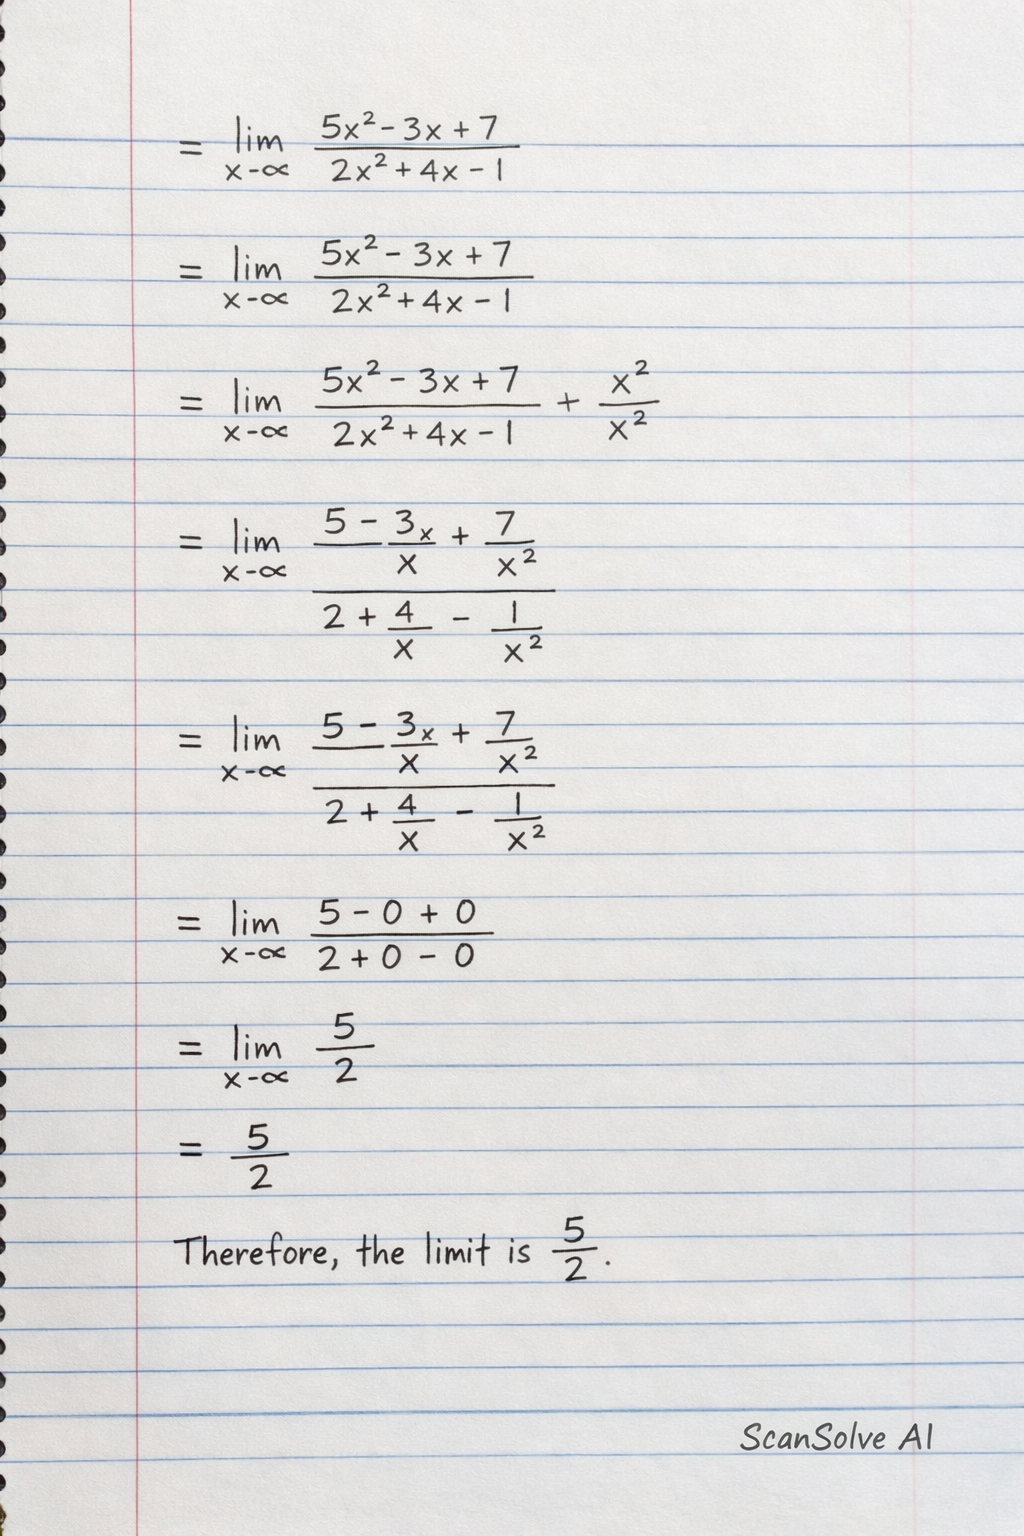 = lim x-∝ (5x² - 3x + 7)/(2x² + 4x - 1)
= lim x-∝ (5x² - 3x + 7)/(2x² + 4x - 1)
= lim x-∝ (5x² - 3x + 7)/(2x² + 4x - 1) + x²/x²
= lim x-∝ (5 - 3ₓ/x + 7/x²)/(2 + 4/x - 1/x²)
= lim x-∝ (5 - 3ₓ/x + 7/x²)/(2 + 4/x - 1/x²)
= lim x-∝ (5 - 0 + 0)/(2 + 0 - 0)
= lim x-∝ 5/2
= 5/2
Therefore, the limit is 5/2.
ScanSolve AI